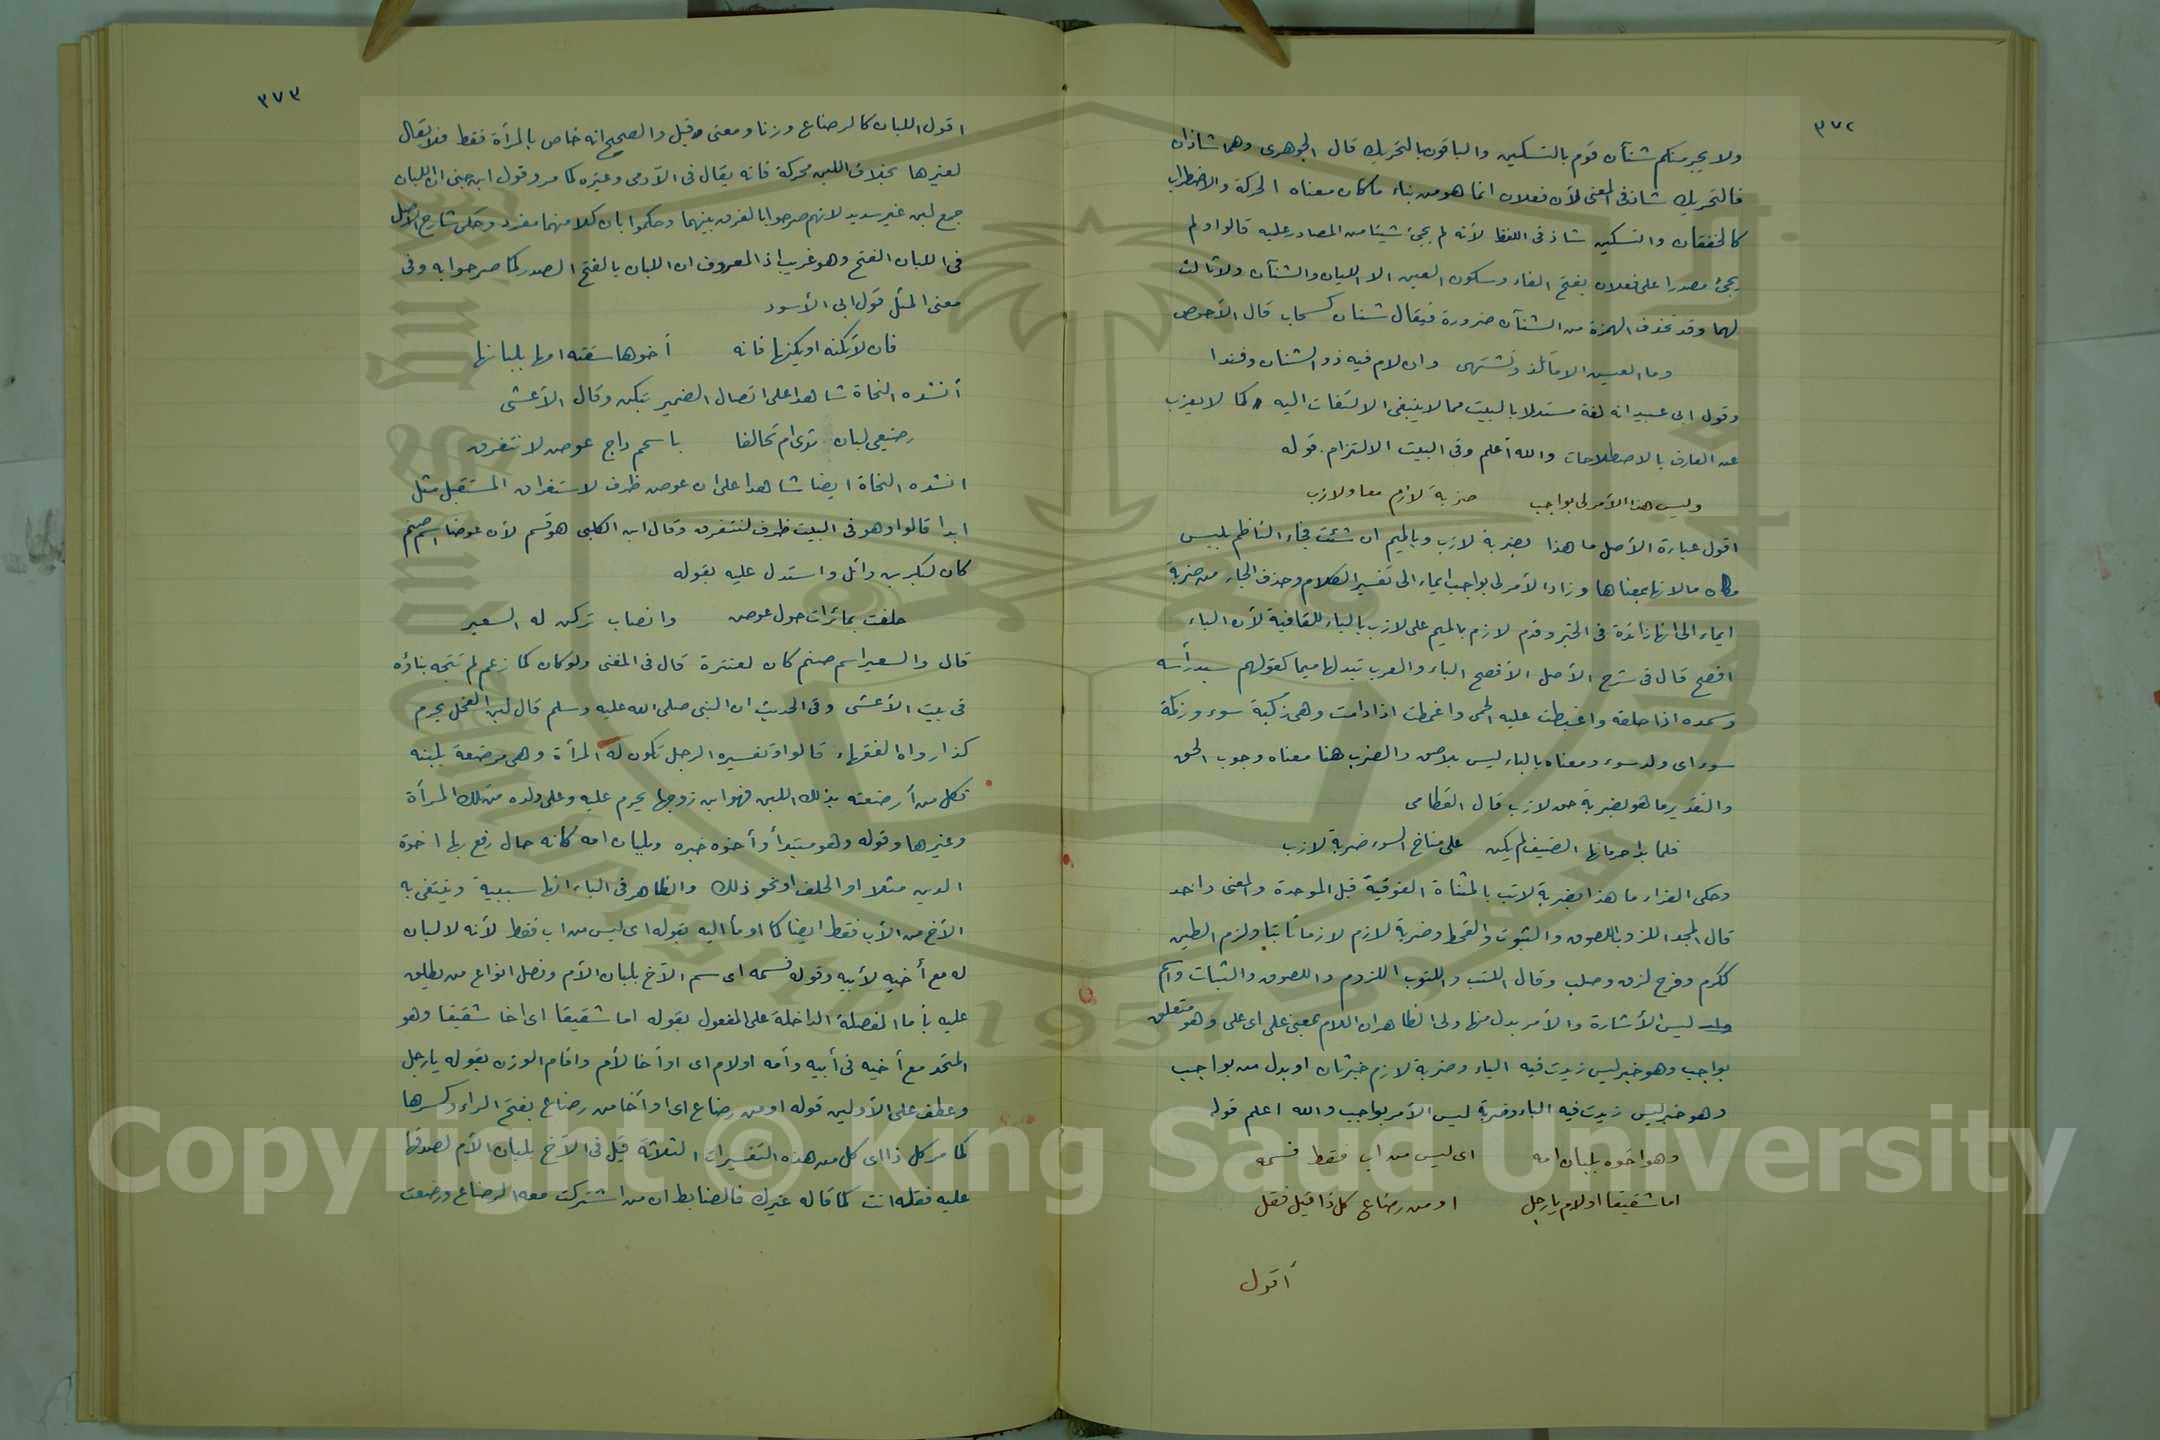 ٣٧٢
ولا يجرمنكم شنآن قوم بالتسكين والباقون بالتحريك قال الجوهرى وهما شاذان
فالتحريك شاذ فى المعنى لأن فعلان انما هو من بناء ما كان معناه الحركة والاضطراب
كالخفقان والتسكين شاذ فى اللفظ لأنه لم يجئ شيئ من المصادر عليه قالوا ولم
يجئ مصدرا على فعلان بفتح الفاء وسكون العين الا الليان والشنآن ولا ثالث
لهما وقد تحذف الهمزة من الشنآن ضرورة فيقال شنان كسحاب قال الأحوص
وما العيش الا ما تلذ وتشتهى وان لام فيه ذو الشنان وفندا
وقول ابى عبيد انه لغة مستدلا بالبيت مما لا ينبغى الالتفات اليه كما لا يعزب
عن العارف بالاصطلاحات والله أعلم وفى البيت الالتزام. قوله
وليس هذا الأمر لى بواجب ضربة لازم معا ولازب
اقول عبارة الأصل ما هذا بضربة لازب وبالميم ان شئت فجاء الناظم بليس
مكان ما لانها بمعناها وزاد الأمر لى بواجب ايماء الى تفسير الكلام وحذف الجار من ضربة
ايماء الى انها زائدة فى الخبر وقدم لازم بالميم على لازب بالباء للقافية لأن الباء
افصح قال فى شرح الأصل الأفصح الباء والعرب تبدلها ميما كقولهم سبد رأسه
وسمده اذا حلقه واغبطت عليه الحمى واغمطت اذا دامت وهى زكبة سوء وزكمة
سوء اى ولد سوء ومعناه بالباء ليس بلاصق والضرب هنا معناه وجوب الحق
والتقدير ما هو بضربة حق لازب قال القطامى
فلما بدا حرمانها الضيف لم يكن على مناخ السوء ضربة لازب
وحكى الفراء ما هذا بضربة لاتب بالمثناة الفوقية قبل الموحدة والمعنى واحد
قال المجد اللزوب اللصوق والثبوت والقحط وضربة لازم لازما ثابتا ولزم الطين
ككرم وفرح لزق وصلب وقال اللتب واللتوب اللزوم واللصوق والثبات واسم
ليس الأشارة والأمر بدل منها ولى الظاهر ان اللام بمعنى على اى على وهو متعلق
بواجب وهو خبر ليس زيدت فيه الباء وضربة لازم خبر ثان او بدل من بواجب
وهو خبر ليس زيدت فيه الباء وضربة ليس الأمر بواجب والله اعلم قوله
وهو اخوه بلبان امه اى ليس من اب فقط فسمه
اما شقيقا او لام يا رجل او من رضاع كل ذا قيل فقل
أقول
٣٧٣
اقول اللبان كالرضاع وزنا ومعنى وقيل والصحيح انه خاص بالمرأة فقط فلا يقال
لغيرها بخلاف اللبن محركة فانه يقال فى الآدمى وغيره كما مر وقول ابن جنى ان اللبان
جمع لبن غير سديد لانهم صرحوا بالفرق بينهما وحكموا بان كلا منهما مفرد وحكى شارح الأصل
فى اللبان الفتح وهو غريب اذ المعروف ان اللبان بالفتح الصدر كما صرحوا به وفى
معنى المثل قول ابى الأسود
فان لا يكنه او يكنها فانه أخوها سقته امها بلبانها
أنشده النحاة شاهدا على اتصال الضمير بيكن وقال الأعشى
رضيعى لبان ثدى ام تحالفا باسحم داج عوض لا نتفرق
انشده النحاة ايضا شاهدا على ان عوض ظرف لاستغراق المستقبل مثل
ابدا قالوا وهو فى البيت ظرف لنتفرق وقال ابن الكلبى هو قسم لأن عوضا اسم صنم
كان لبكر بن وائل واستدل عليه بقوله
حلفت بمائرات حول عوض وانصاب تركن له السعير
قال والسعير اسم صنم كان لعنترة قال فى المغنى ولو كان كما زعم لم يتجه بناؤه
فى بيت الأعشى وفى الحديث ان النبى صلى الله عليه وسلم قال لبن الفحل يحرم
كذا رواه الفقهاء قالوا وتفسيره الرجل تكون له المرأة وهى مرضعة بلبنه
فكل من أرضعته بذلك اللبن فهو ابن زوجها يحرم عليه وعلى ولده من تلك المرأة
وغيرها وقوله وهو مبتدأ وأخوه خبره وبلبان امه كأنه حال رفع بها اخوة
الدين مثلا او الحلف او نحو ذلك والظاهر فى الباء انها سببية وينتفى به
الأخ من الأب فقط ايضا كما اومأ اليه بقوله اى ليس من اب فقط لأنه لا لبان
له مع أخيه لأبيه وقوله فسمه اى سم الأخ بلبان الأم وفصل انواع من يطلق
عليه بأما المفصلة الداخلة على المفعول بقوله اما شقيقا اى اخا شقيقا وهو
المتحد مع أخيه فى أبيه وأمه او لام اى او أخا لأم واقام الوزن بقوله يا رجل
وعطف على الأولين قوله او من رضاع اى او أخا من رضاع بفتح الراء وكسرها
كما مر كل ذا اى كل من هذه التفسيرات الثلاثة قيل فى الأخ بلبان الأم لصدقها
عليه فقله انت كما قاله غيرك فالضابط ان من اشتركت معه الرضاع ورضعت
Copyright © King Saud University
1957